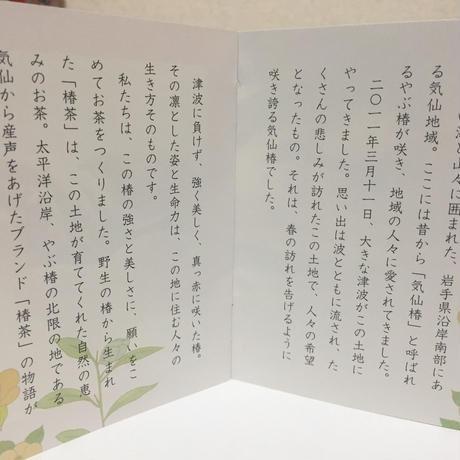 い海と山々に囲まれた、岩手県沿岸南部にあ
る気仙地域。ここには昔から「気仙椿」と呼ばれ
るやぶ椿が咲き、地域の人々に愛されてきました。
二〇一一年三月十一日、大きな津波がこの土地に
やってきました。思い出は波とともに流され、た
くさんの悲しみが訪れたこの土地で、人々の希望
となったもの。それは、春の訪れを告げるように
咲き誇る気仙椿でした。
津波に負けず、強く美しく、真っ赤に咲いた椿。
その凛とした姿と生命力は、この地に住む人々の
生き方そのものです。
私たちは、この椿の強さと美しさに、願いをこ
めてお茶をつくりました。野生の椿から生まれ
た「椿茶」は、この土地が育ててくれた自然の恵
みのお茶。太平洋沿岸、やぶ椿の北限の地である
気仙から産声をあげたブランド「椿茶」の物語が